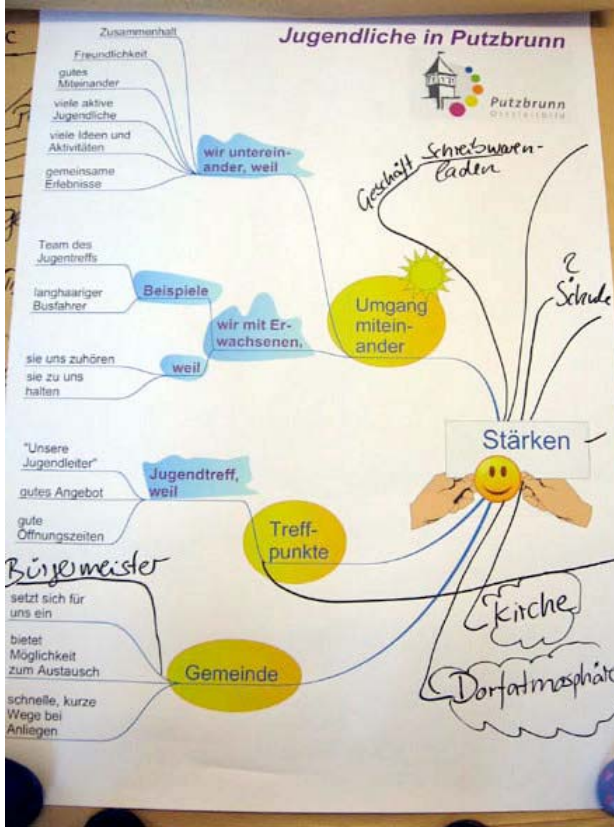 Jugendliche in Putzbrunn
Putzbrunn
Zusammenhalt
Freundlichkeit
gutes
Miteinander
viele aktive
Jugendliche
viele Ideen und
Aktivitäten
gemeinsame
Erlebnisse
wir unterein-
ander, weil
Geschäft
Schreibwaren-
laden
Team des
Jugentreffs
langhaariger
Busfahrer
Beispiele
wir mit Er-
wachsenen,
weil
sie uns zuhören
sie zu uns
halten
Umgang
mitein-
ander
?
Schule
Stärken
"Unsere
Jugendleiter"
gutes Angebot
gute
Öffnungszeiten
Jugendtreff,
weil
Treff-
punkte
Bürgermeister
setzt sich für
uns ein
bietet
Möglichkeit
zum Austausch
schnelle, kurze
Wege bei
Anliegen
Gemeinde
Kirche
Dorfatmosphäre